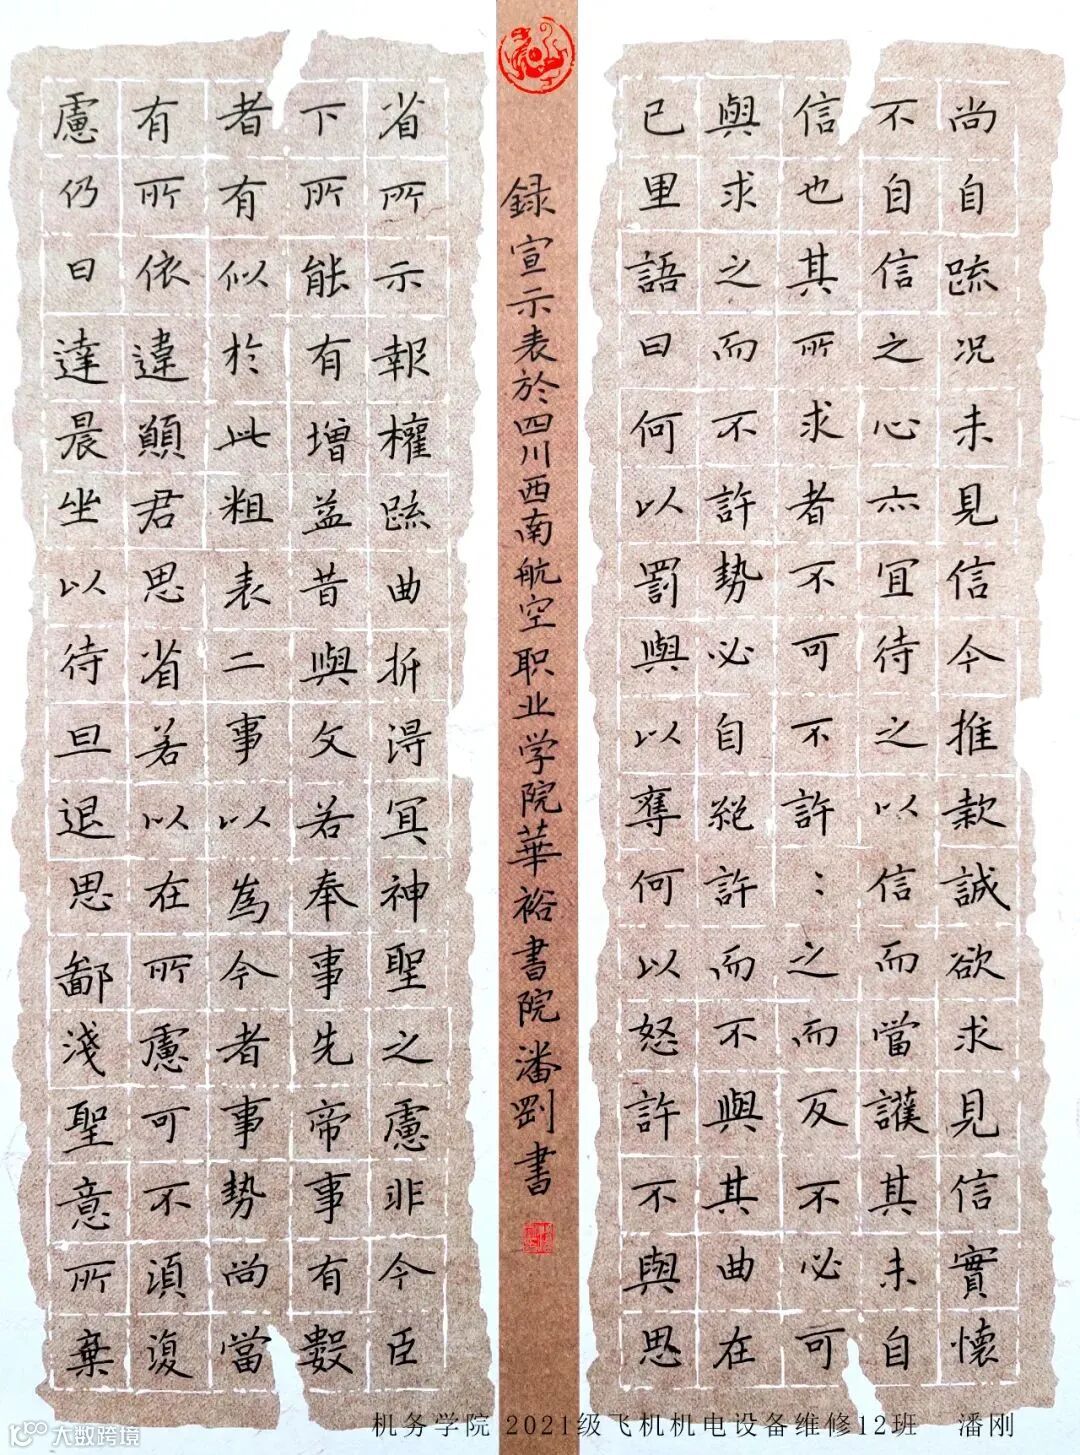 尚自踈况未見信今推款誠欲求見信實懷
不自信之心亦冝待之以信而當護其未自
信也其所求者不可不許：之而反不必可
與求之而不許勢必自絕許而不與其曲在
已里語曰何以罰與以奪何以怒許不與思
録宣示表於四川西南航空职业学院華裕書院潘剛書
省所示報權踈曲折得冝神聖之慮非今臣
下所能有增益昔與文若奉事先帝事有數
者有似於此粗表二事以為今者事勢尚當
有所依違願君思省若以在所慮可不須復
慮仍曰達晨坐以待旦退思鄙淺聖意所棄
机务学院 2021级飞机机电设备维修12班 潘刚
大数跨境